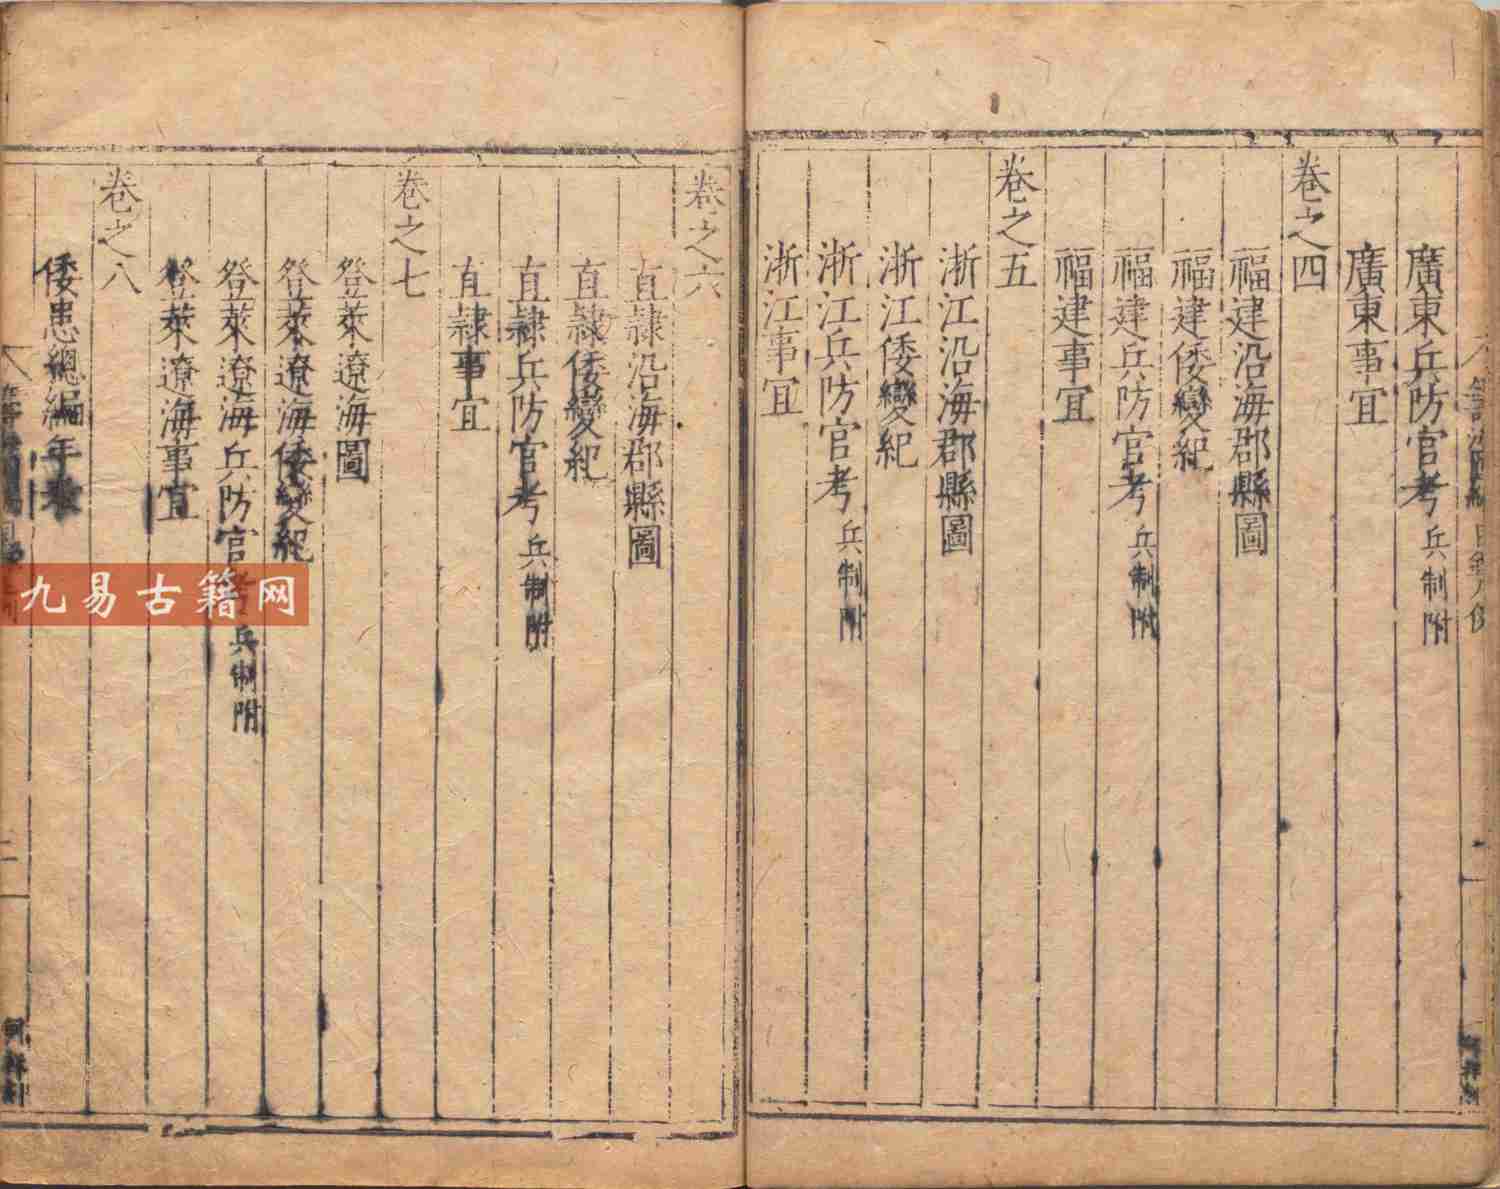 廣東兵防官考 兵制附
廣東事宜
卷之四
福建沿海郡縣圖
福建倭變紀
福建兵防官考 兵制附
福建事宜
卷之五
浙江沿海郡縣圖
浙江倭變紀
浙江兵防官考 兵制附
浙江事宜
卷之六
直隷沿海郡縣圖
直隷倭變紀
直隷兵防官考 兵制附
直隷事宜
卷之七
登萊遼海圖
登萊遼海倭變紀
登萊遼海兵防官考 兵制附
登萊遼海事宜
卷之八
倭患總編年表
九易古籍网